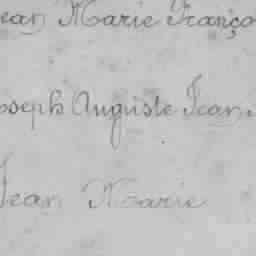 Jean Marie Franço
Joseph Auguste Jean
Jean Marie